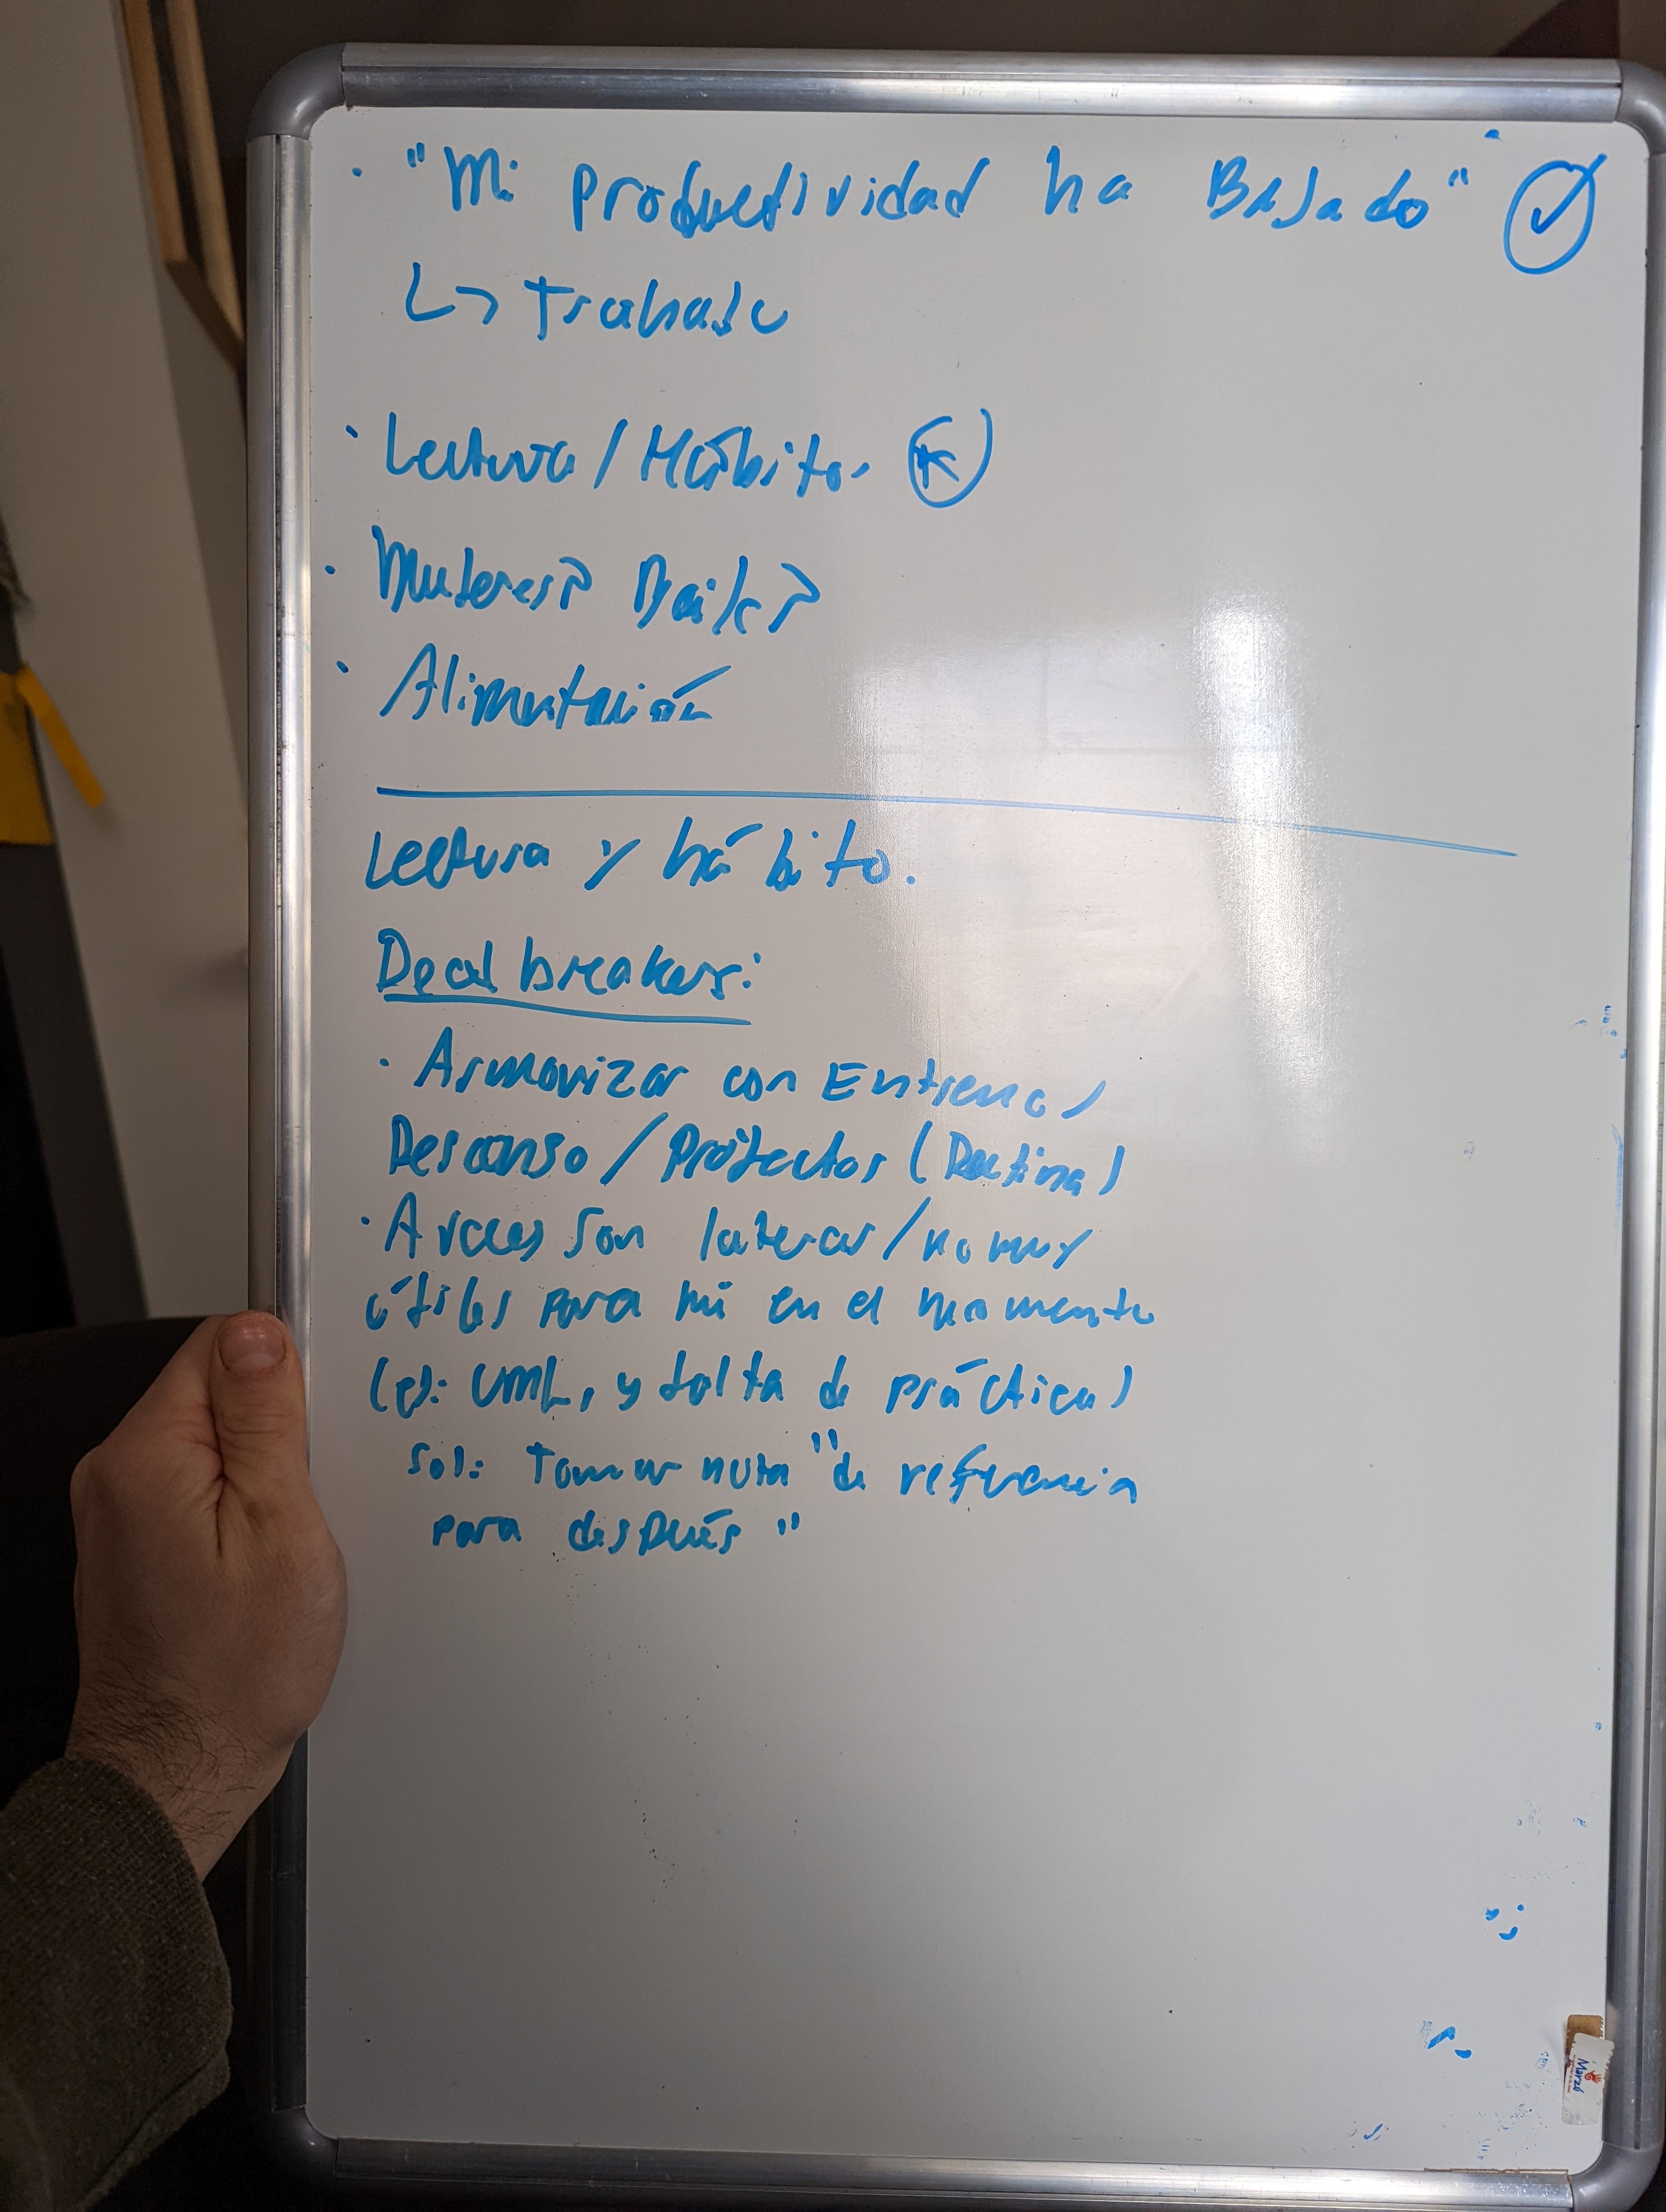 · "Mi productividad ha Bajado" ✓
↳ trabajo
· Lectura / Hábitos *
· Mujeres? Baile?
· Alimentación
Lectura y hábito.
Deal breakers:
· Armonizar con Entreno /
Descanso / Proyectos (Rutina)
· A veces son lateras / no muy
útiles para mi en el momento
(ej: UML, y falta de práctica)
sol: Tomar nota "de referencia
para después"